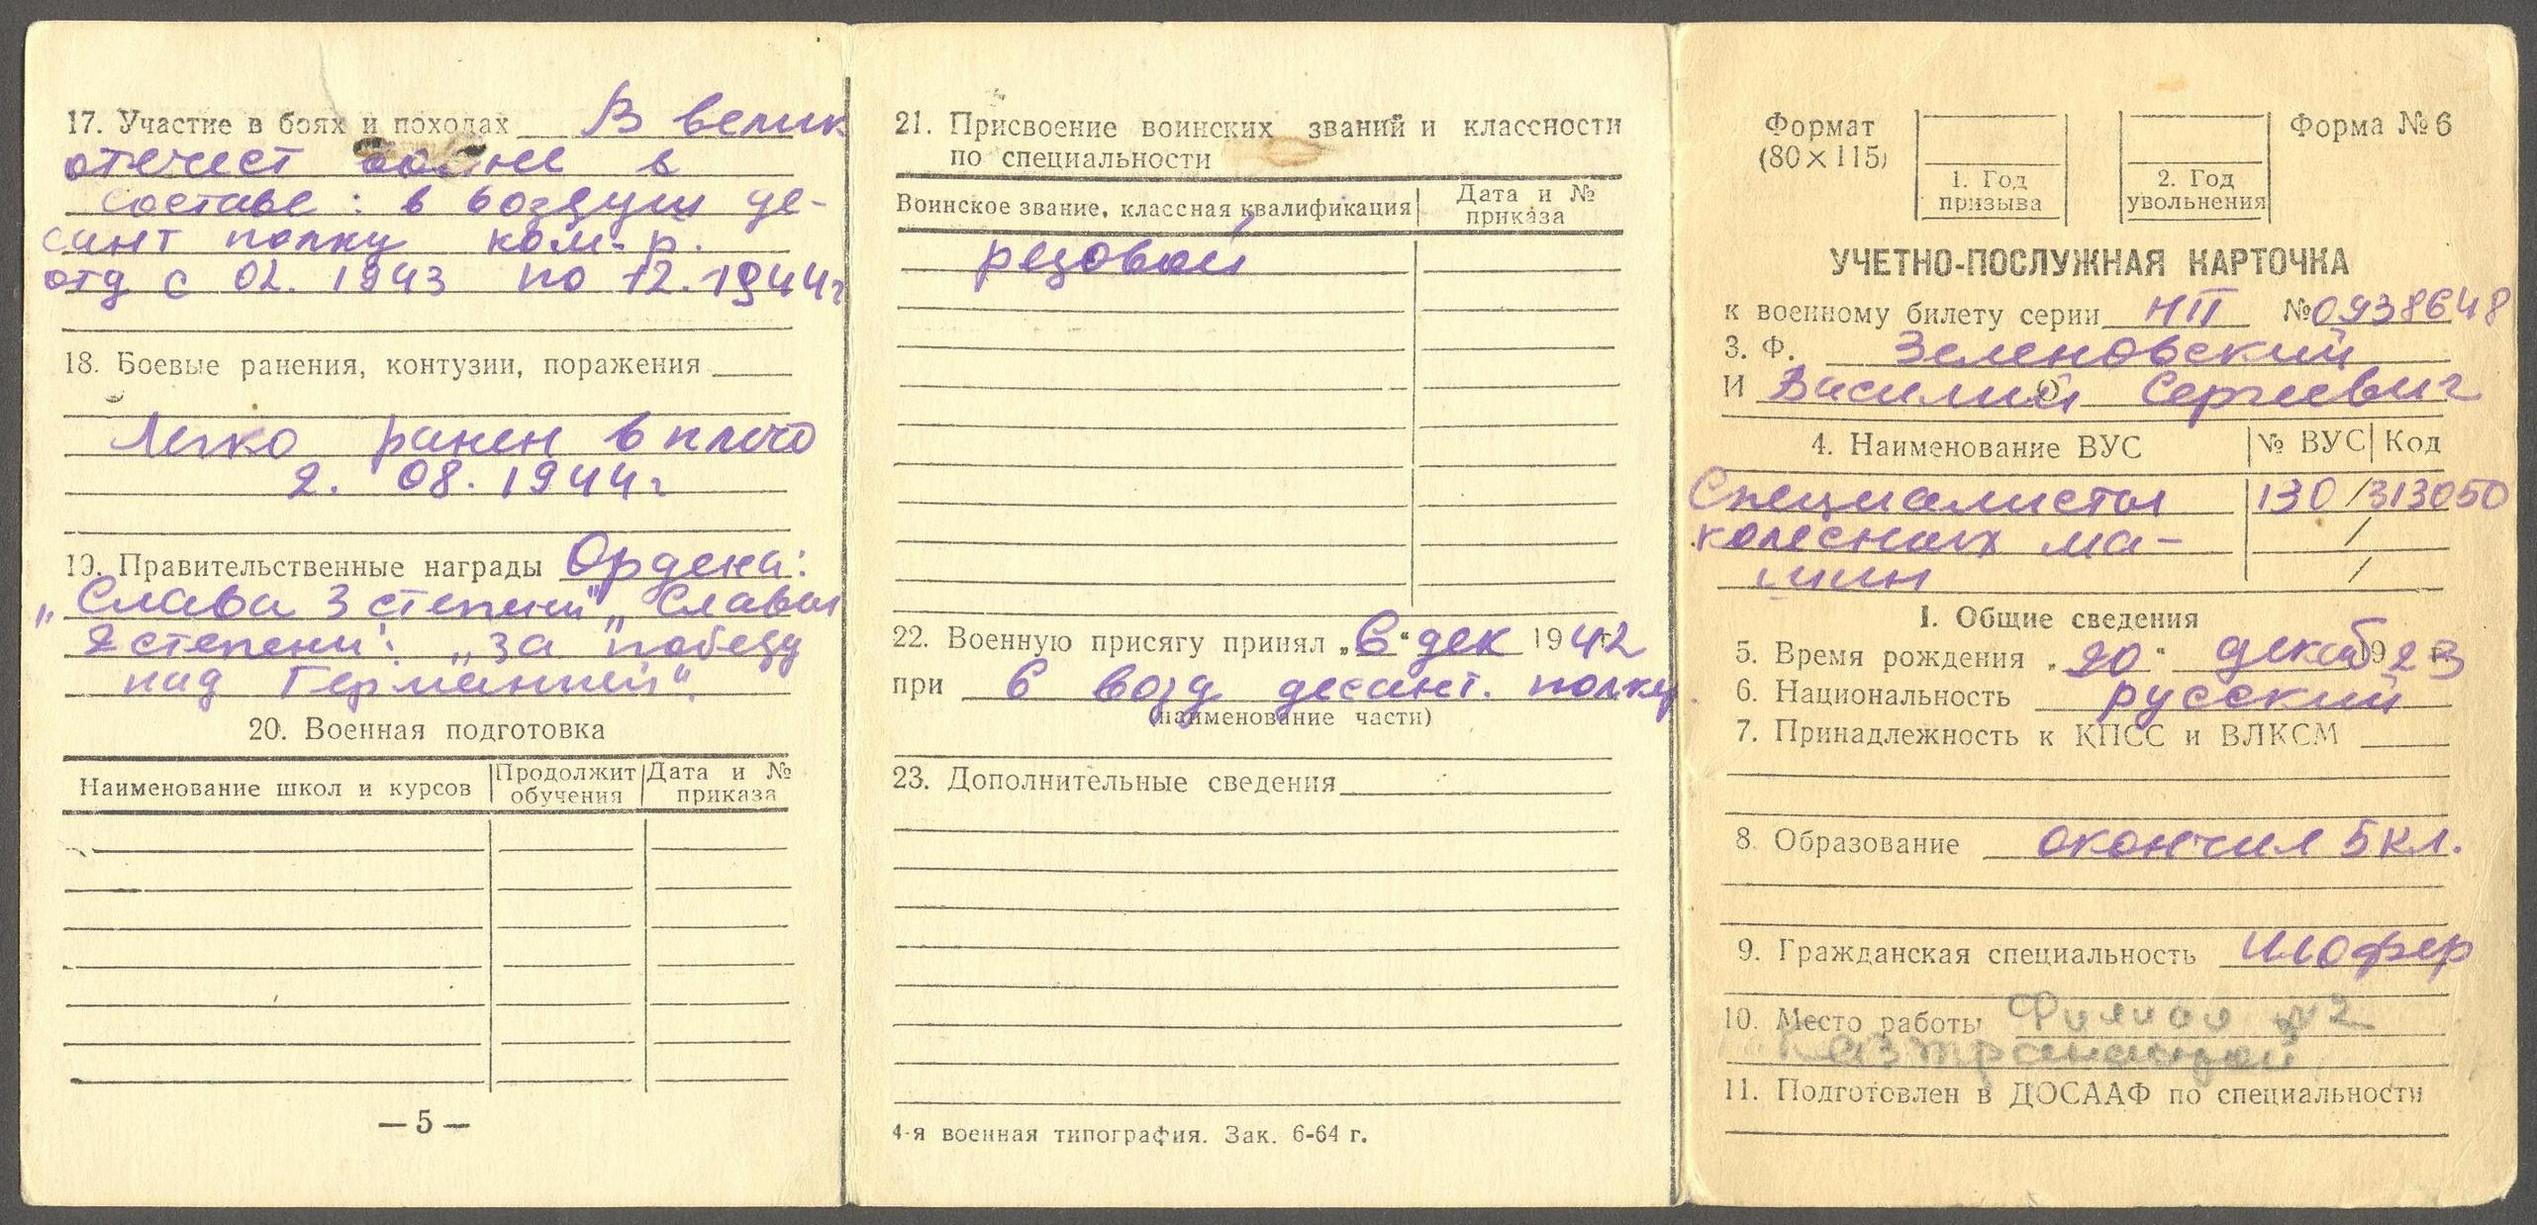 17. Участие в боях и походах В велик
отечест войне в
составе: в воздуш де-
сант полку ком. р.
отд с 02. 1943 по 12. 1944г
18. Боевые ранения, контузии, поражения
Легко ранен в плечо
2. 08. 1944г
19. Правительственные награды Ордена:
„Слава 3 степени" „Славы
2 степени": „За победу
над Германией".
20. Военная подготовка
Наименование школ и курсов | Продолжит обучения | Дата и № приказа
— 5 —
21. Присвоение воинских званий и классности
по специальности
Воинское звание, классная квалификация | Дата и № приказа
рядовой
22. Военную присягу принял „6" дек 1942 г.
при в возд десант. полку
(наименование части)
23. Дополнительные сведения
4-я военная типография. Зак. 6-64 г.
Формат
(80×115)
1. Год
призыва
2. Год
увольнения
Форма № 6
УЧЕТНО-ПОСЛУЖНАЯ КАРТОЧКА
к военному билету серии НП № 0938648
3. Ф. Зеленовский
И Василий О Сергеевич
4. Наименование ВУС | № ВУС | Код
Специалисты 130 / 313050
колесных ма- /
шин /
I. Общие сведения
5. Время рождения „20" декаб 1923
6. Национальность русский
7. Принадлежность к КПСС и ВЛКСМ
8. Образование окончил 5 кл.
9. Гражданская специальность шофер
10. Место работы Филиал №2
11. Подготовлен в ДОСААФ по специальности